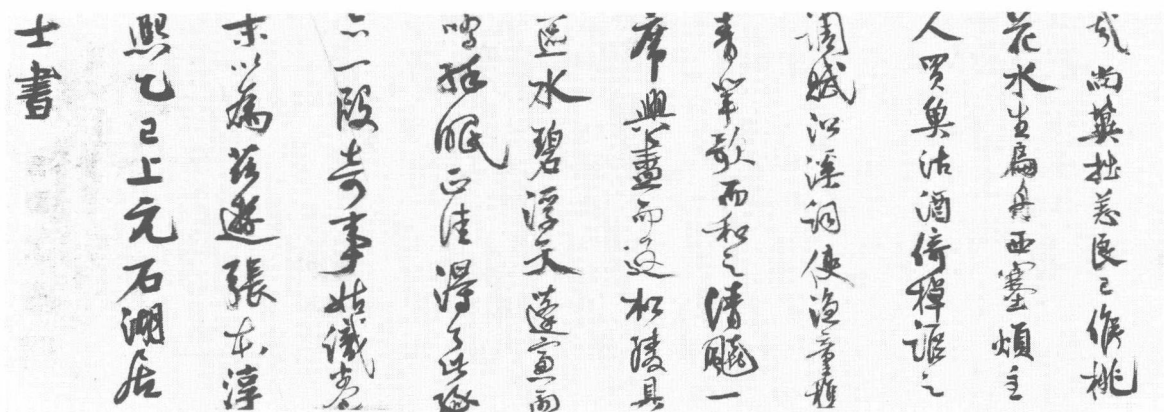 哉尚冀拙恙良已候桃
花水生扁舟西塞煩主
人買魚沽酒倚棹謳之
調賦沿溪詞使漁童樵
青輩歌而和之清飈一
席興盡而返松陵具
區水碧浮天蓬窗雨
鳴眠正佳得了此緣
亦一段奇事姑識卷
末以為茲遊張本淳
熙乙巳上元石湖居
士書